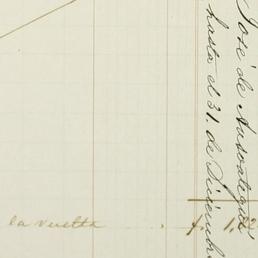 José de Ansoategui
hasta el 31. de Diciembre
la vuelta
f. 1.